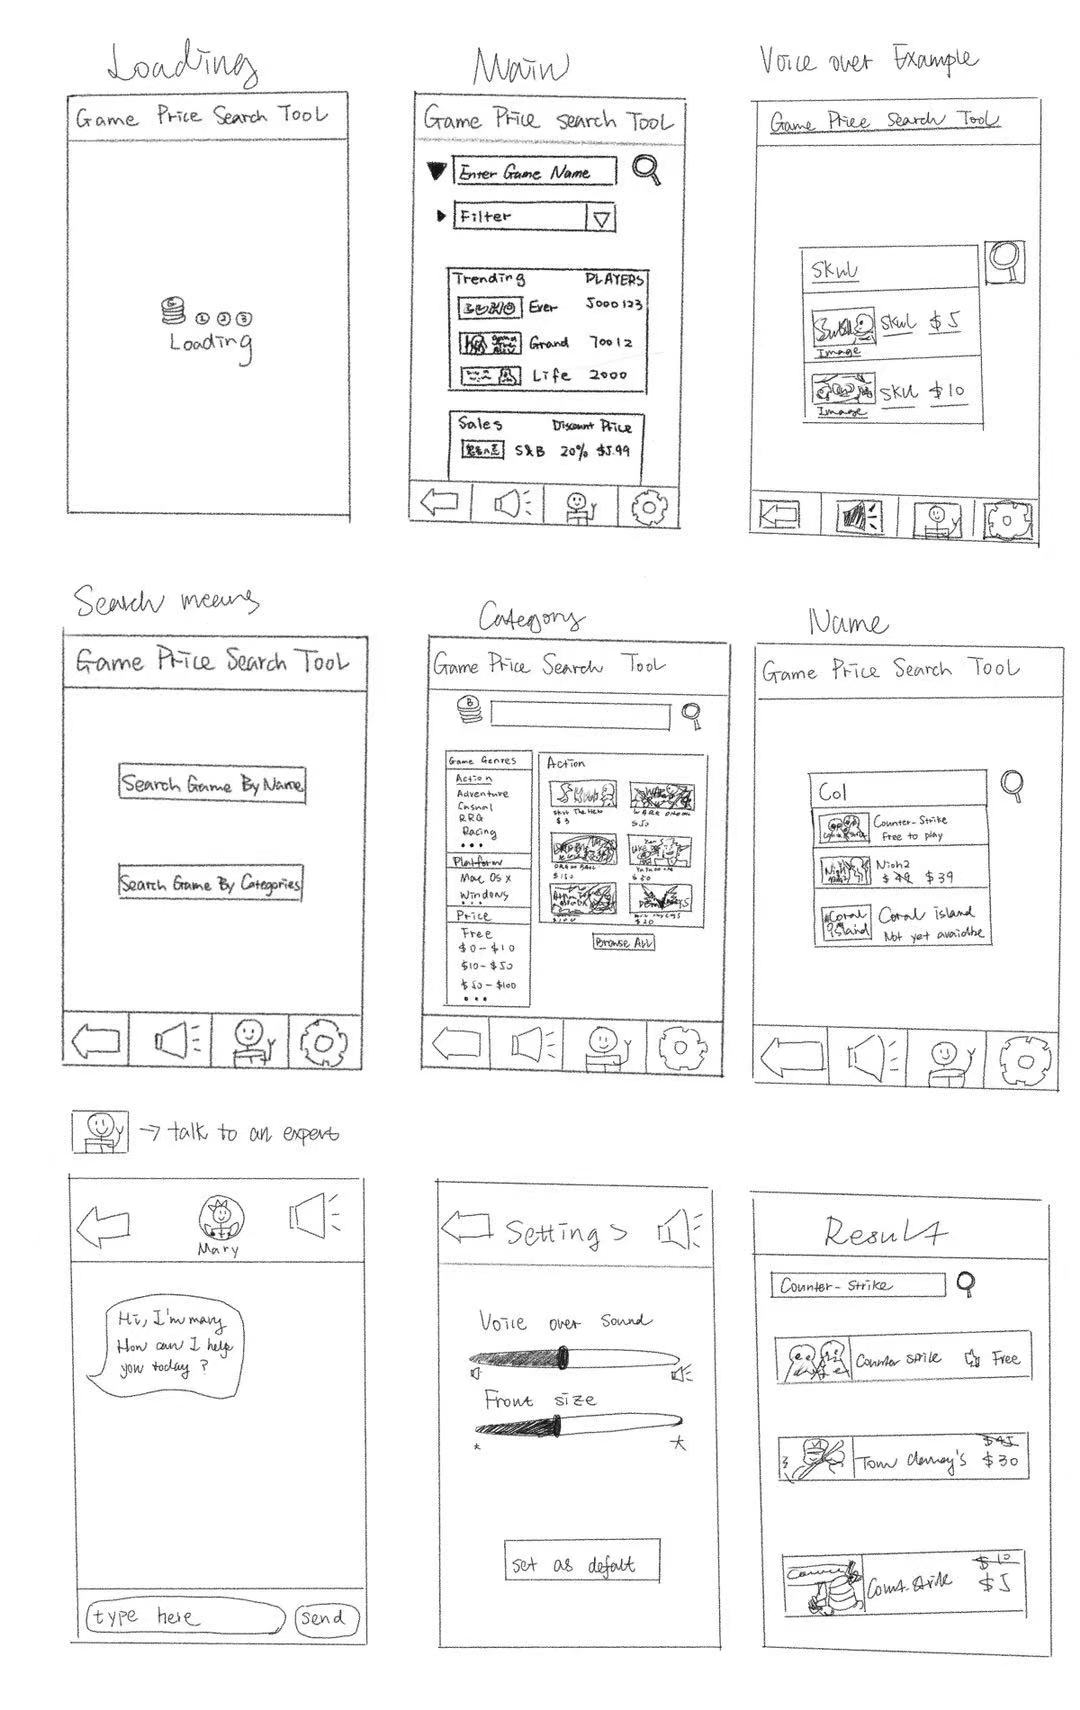 Loading
Game Price Search Tool
1 2 3
Loading
Main
Game Price search Tool
Enter Game Name
Filter
Trending PLAYERS
Ever 5000123
Grand 70012
Life 2000
Sales Discount Price
S&B 20% $5.99
Voice over Example
Game Price Search Tool
Skul
Skul $5
Image
Skul $10
Image
Search means
Game Price Search Tool
Search Game By Name
Search Game By Categories
Category
Game Price Search Tool
B
Game Genres
Action
Adventure
Casual
RRG
Racing
Platform
Mac OS X
Windows
Price
Free
$0-$10
$10-$50
$50-$100
Action
$3
$50
$150
$50
$20
Browse All
Name
Game Price Search Tool
Col
Counter-Strike
Free to play
Nioh2
$49 $39
Coral island
Coral island
Not yet avaidbe
→ talk to an expert
Mary
Hi, I'm mary
How can I help
you today ?
type here
send
Settings
Voice over sound
Front size
set as defalt
Result
Counter-Strike
Counter strike Free
$45
Tom clamcy's $30
$10
Count.strike $5